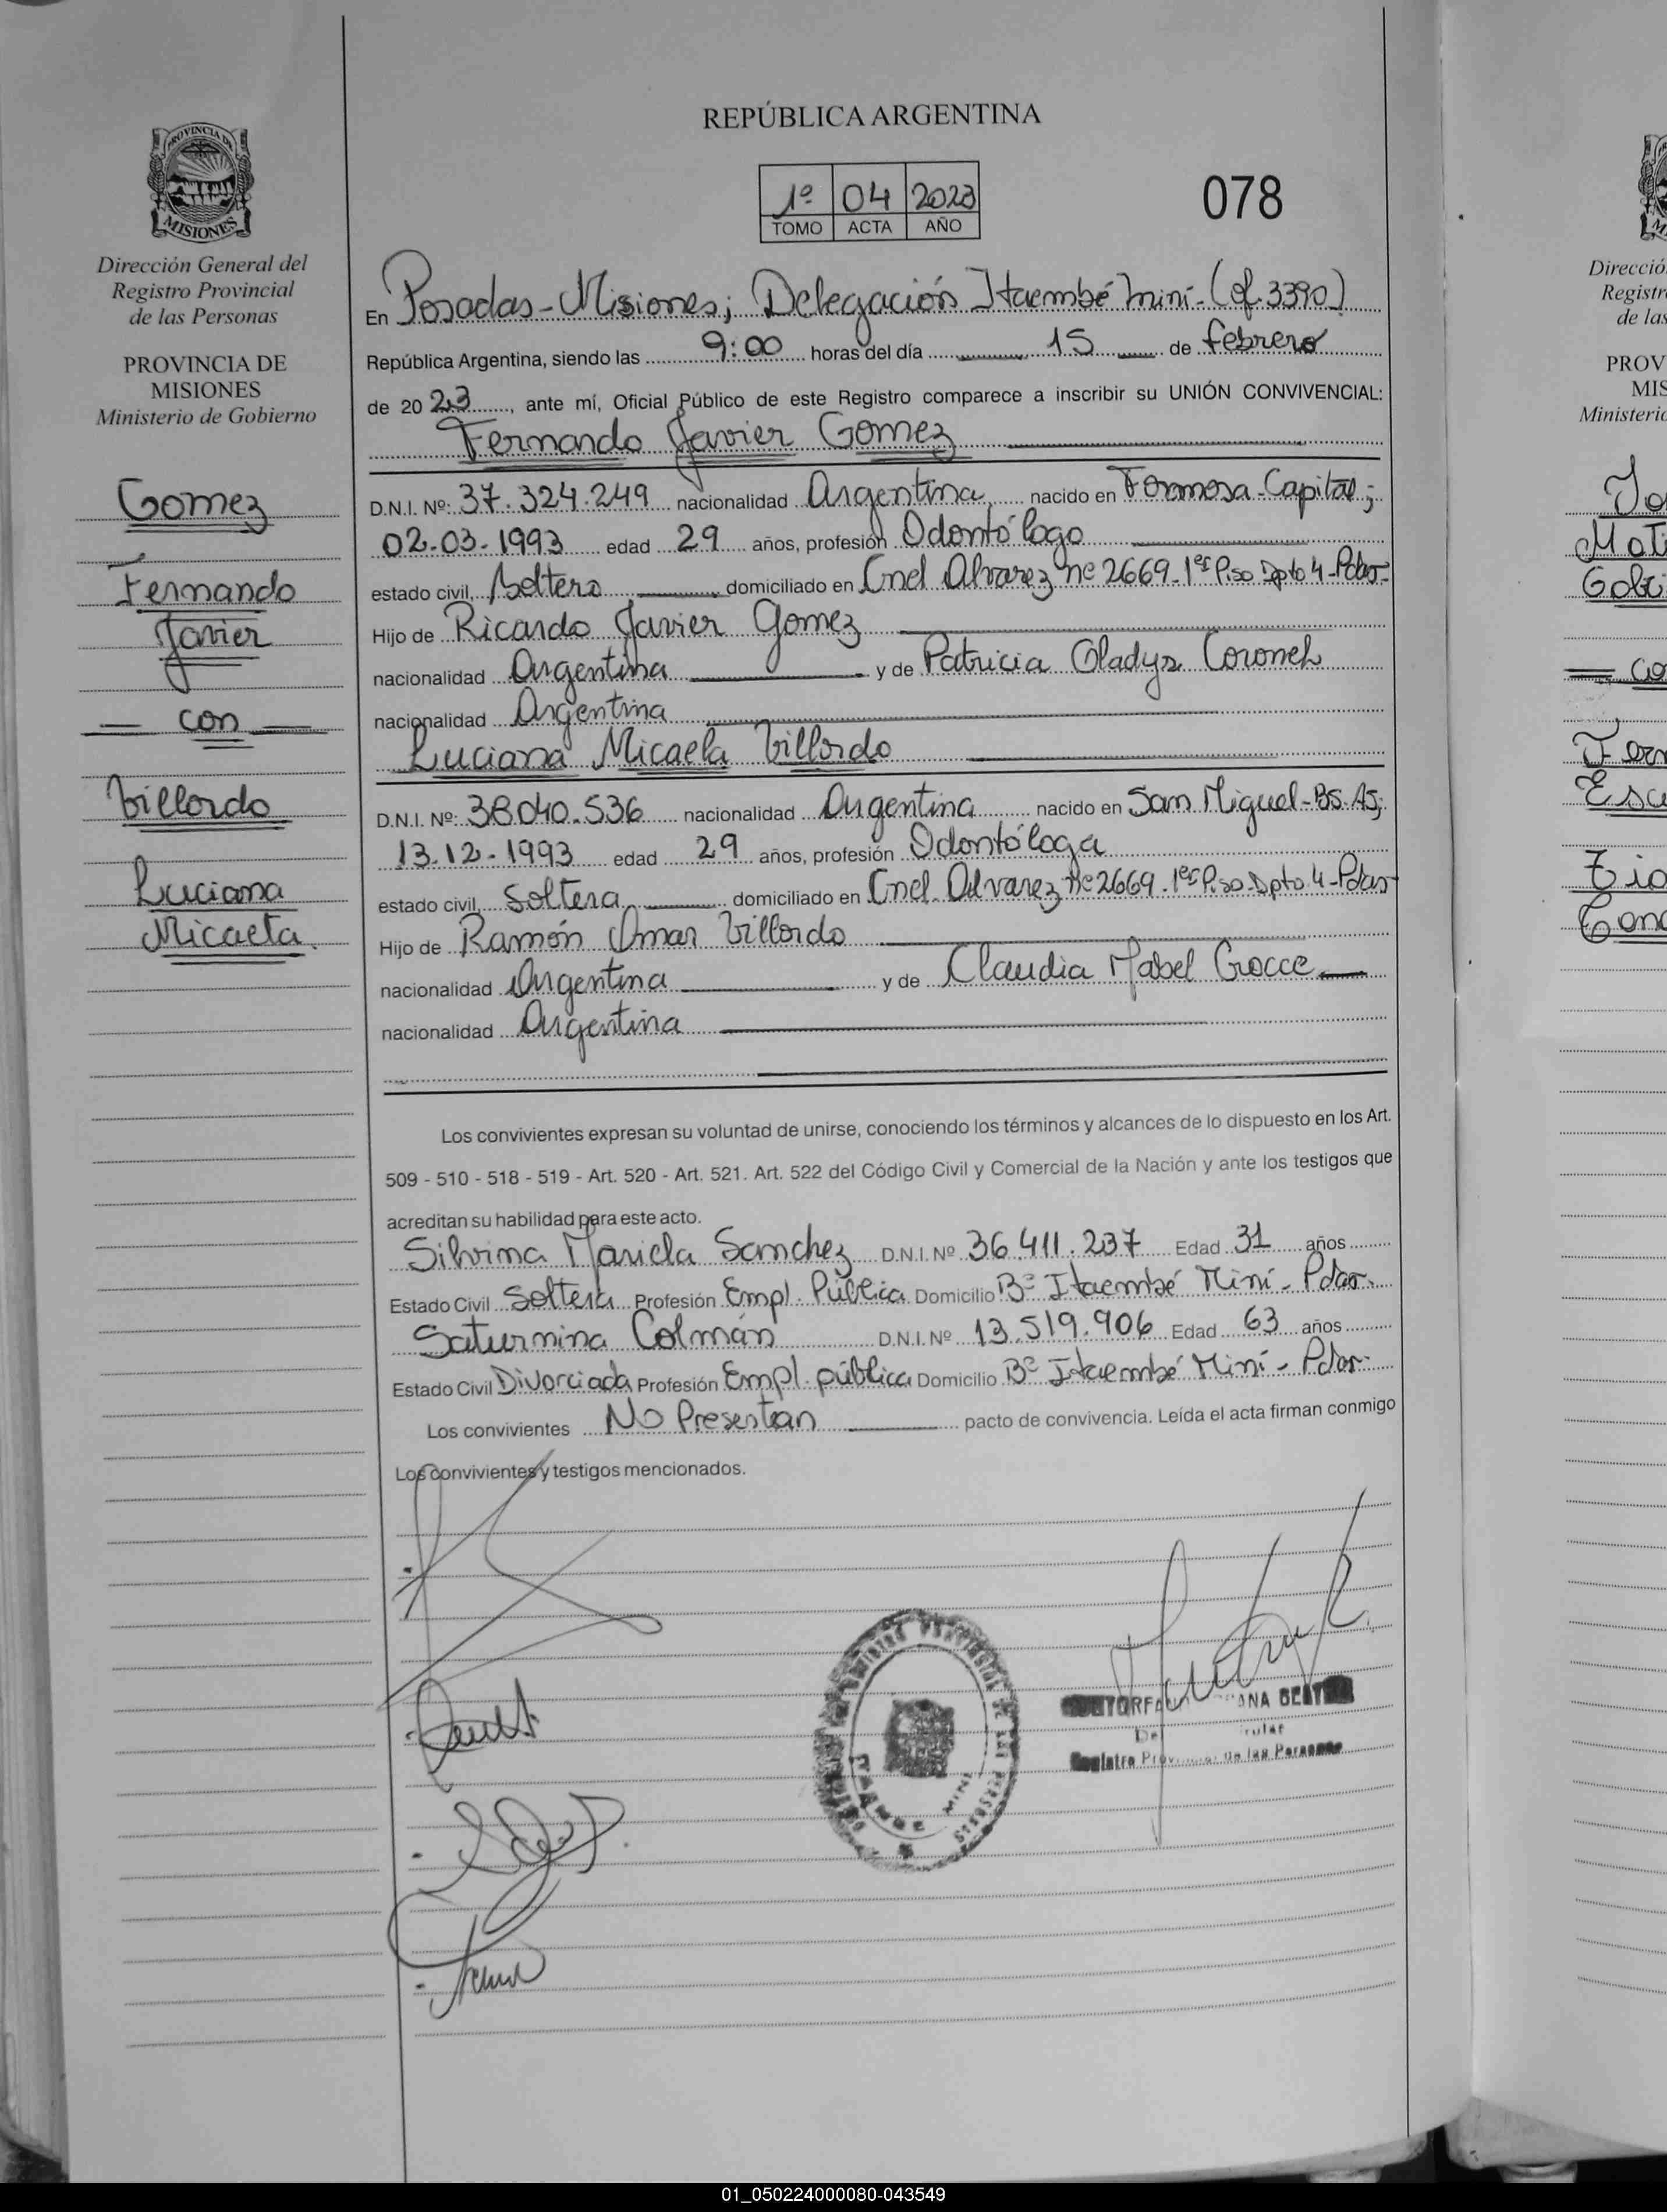 REPÚBLICA ARGENTINA
1º 04 2023
TOMO ACTA AÑO
078
PROVINCIA DE
MISIONES
Dirección General del
Registro Provincial
de las Personas
PROVINCIA DE
MISIONES
Ministerio de Gobierno
Gomez
Fernando
Javier
con
Villordo
Luciana
Micaela.
En Posadas - Misiones; Delegación Itaembé Miní - (of. 3390)
República Argentina, siendo las 9:00 horas del día 15 de febrero
de 2023, ante mí, Oficial Público de este Registro comparece a inscribir su UNIÓN CONVIVENCIAL:
Fernando Javier Gomez
D.N.I. Nº: 37.324.249 nacionalidad Argentina nacido en Formosa-Capital;
02-03-1993 edad 29 años, profesión Odontólogo
estado civil, Soltero domiciliado en Cnel Alvarez nº 2669-1er Piso Dpto 4-Pdas-
Hijo de Ricardo Javier Gomez
nacionalidad Argentina y de Patricia Gladys Coronel
nacionalidad Argentina
Luciana Micaela Villordo
D.N.I. Nº: 38.040.536 nacionalidad Argentina nacido en San Miguel-Bs. As;
13-12-1993 edad 29 años, profesión Odontóloga
estado civil, Soltera domiciliado en Cnel. Alvarez Nº 2669-1er Piso-Dpto 4-Pdas-
Hijo de Ramón Omar Villordo
nacionalidad Argentina y de Claudia Mabel Crocce
nacionalidad Argentina
Los convivientes expresan su voluntad de unirse, conociendo los términos y alcances de lo dispuesto en los Art.
509 - 510 - 518 - 519 - Art. 520 - Art. 521. Art. 522 del Código Civil y Comercial de la Nación y ante los testigos que
acreditan su habilidad para este acto.
Silvina Mariela Sanchez D.N.I. Nº 36.411.237 Edad 31 años
Estado Civil Soltera Profesión Empl. Pública Domicilio Bº Itaembé Miní - Pdas.
Saturnina Colmán D.N.I. Nº 13.519.906 Edad 63 años
Estado Civil Divorciada Profesión Empl. pública Domicilio Bº Itaembé Miní - Pdas.
Los convivientes No Presentan pacto de convivencia. Leída el acta firman conmigo
Los convivientes y testigos mencionados.
Registro Provincial de las Personas
MINI
Direcció
Registr
de las
PROV
MIS
Ministerio
01_050224000080-043549